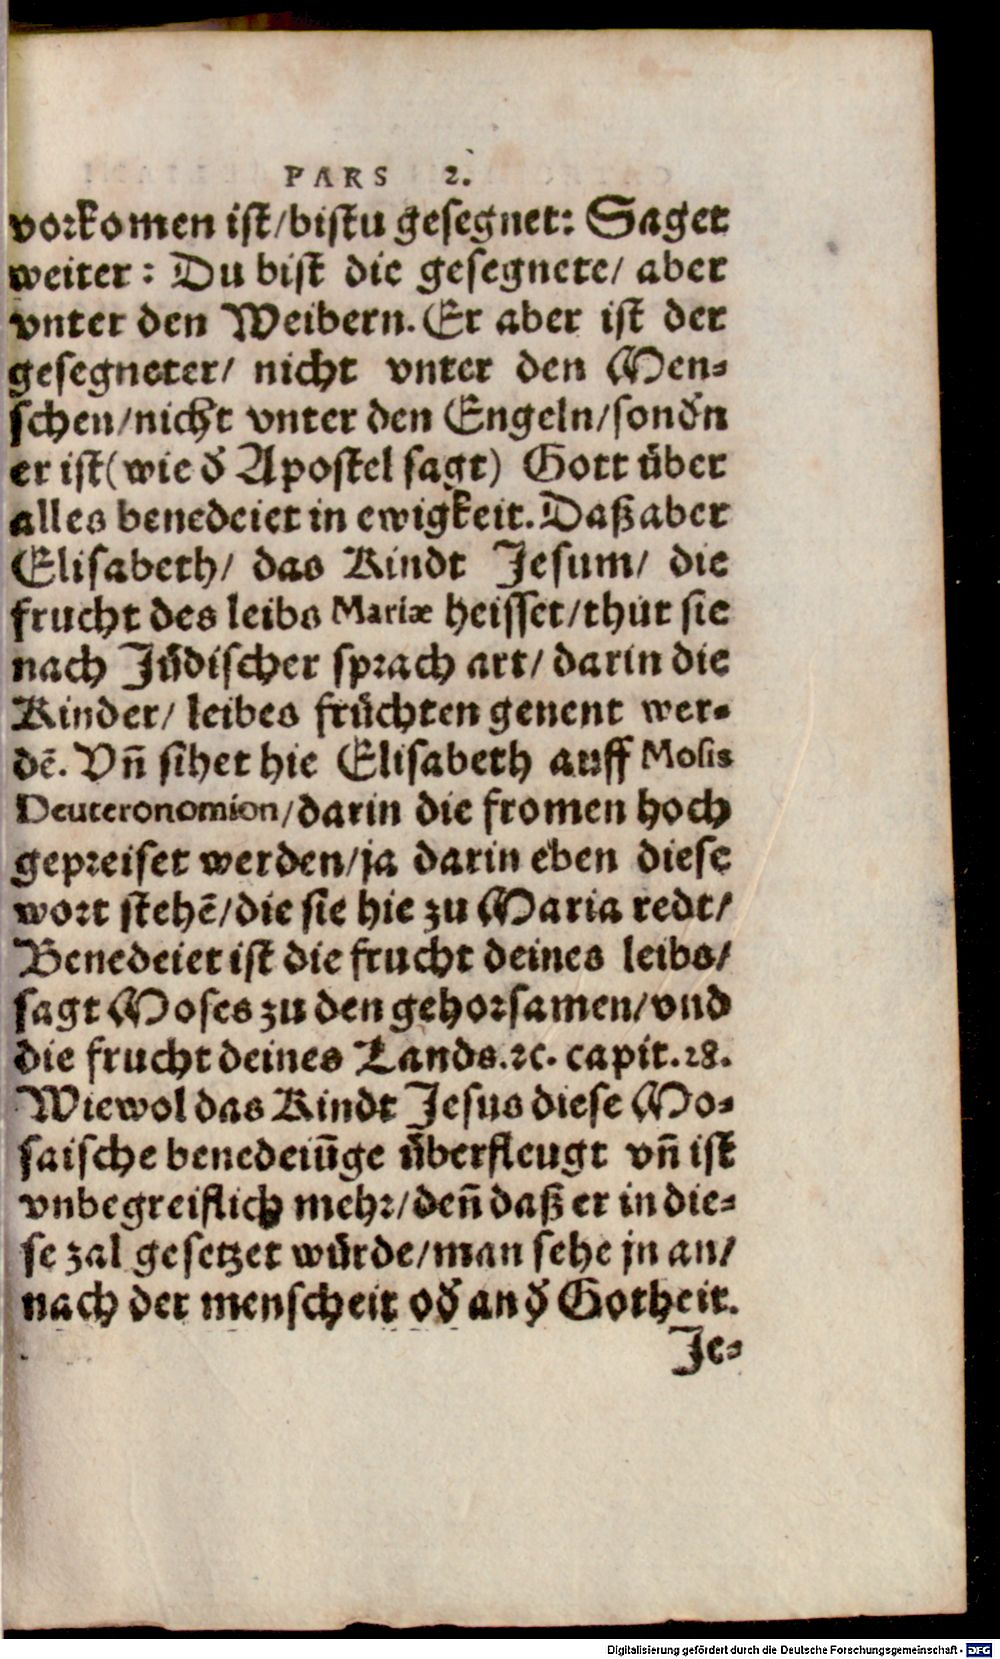 PARS 2.
vorkomen ist/bistu gesegnet: Saget
weiter: Du bist die gesegnete/ aber
vnter den Weibern. Er aber ist der
gesegneter/ nicht vnter den Men-
schen/nicht vnter den Engeln/sondn̄
er ist(wie d̄ Apostel sagt) Gott über
alles benedeiet in ewigkeit. Daß aber
Elisabeth/ das Kindt Jesum/ die
frucht des leibs Mariæ heisset/thut sie
nach Jüdischer sprach art/ darin die
Kinder/ leibes früchten genent wer-
dē. Vñ sihet hie Elisabeth auff Mosis
Deuteronomion/darin die fromen hoch
gepreiset werden/ja darin eben diese
wort stehē/die sie hie zu Maria redt/
Benedeiet ist die frucht deines leibs/
sagt Moses zu den gehorsamen/vnd
die frucht deines Lands.ꝛc. capit.28.
Wiewol das Kindt Jesus diese Mo-
saische benedeiūge überfleugt vñ ist
vnbegreiflich mehr/deñ daß er in die-
se zal gesetzet würde/man sehe jn an/
nach der menscheit od̄ an d̄ Gotheit.
Je-
Digitalisierung gefördert durch die Deutsche Forschungsgemeinschaft - DFG